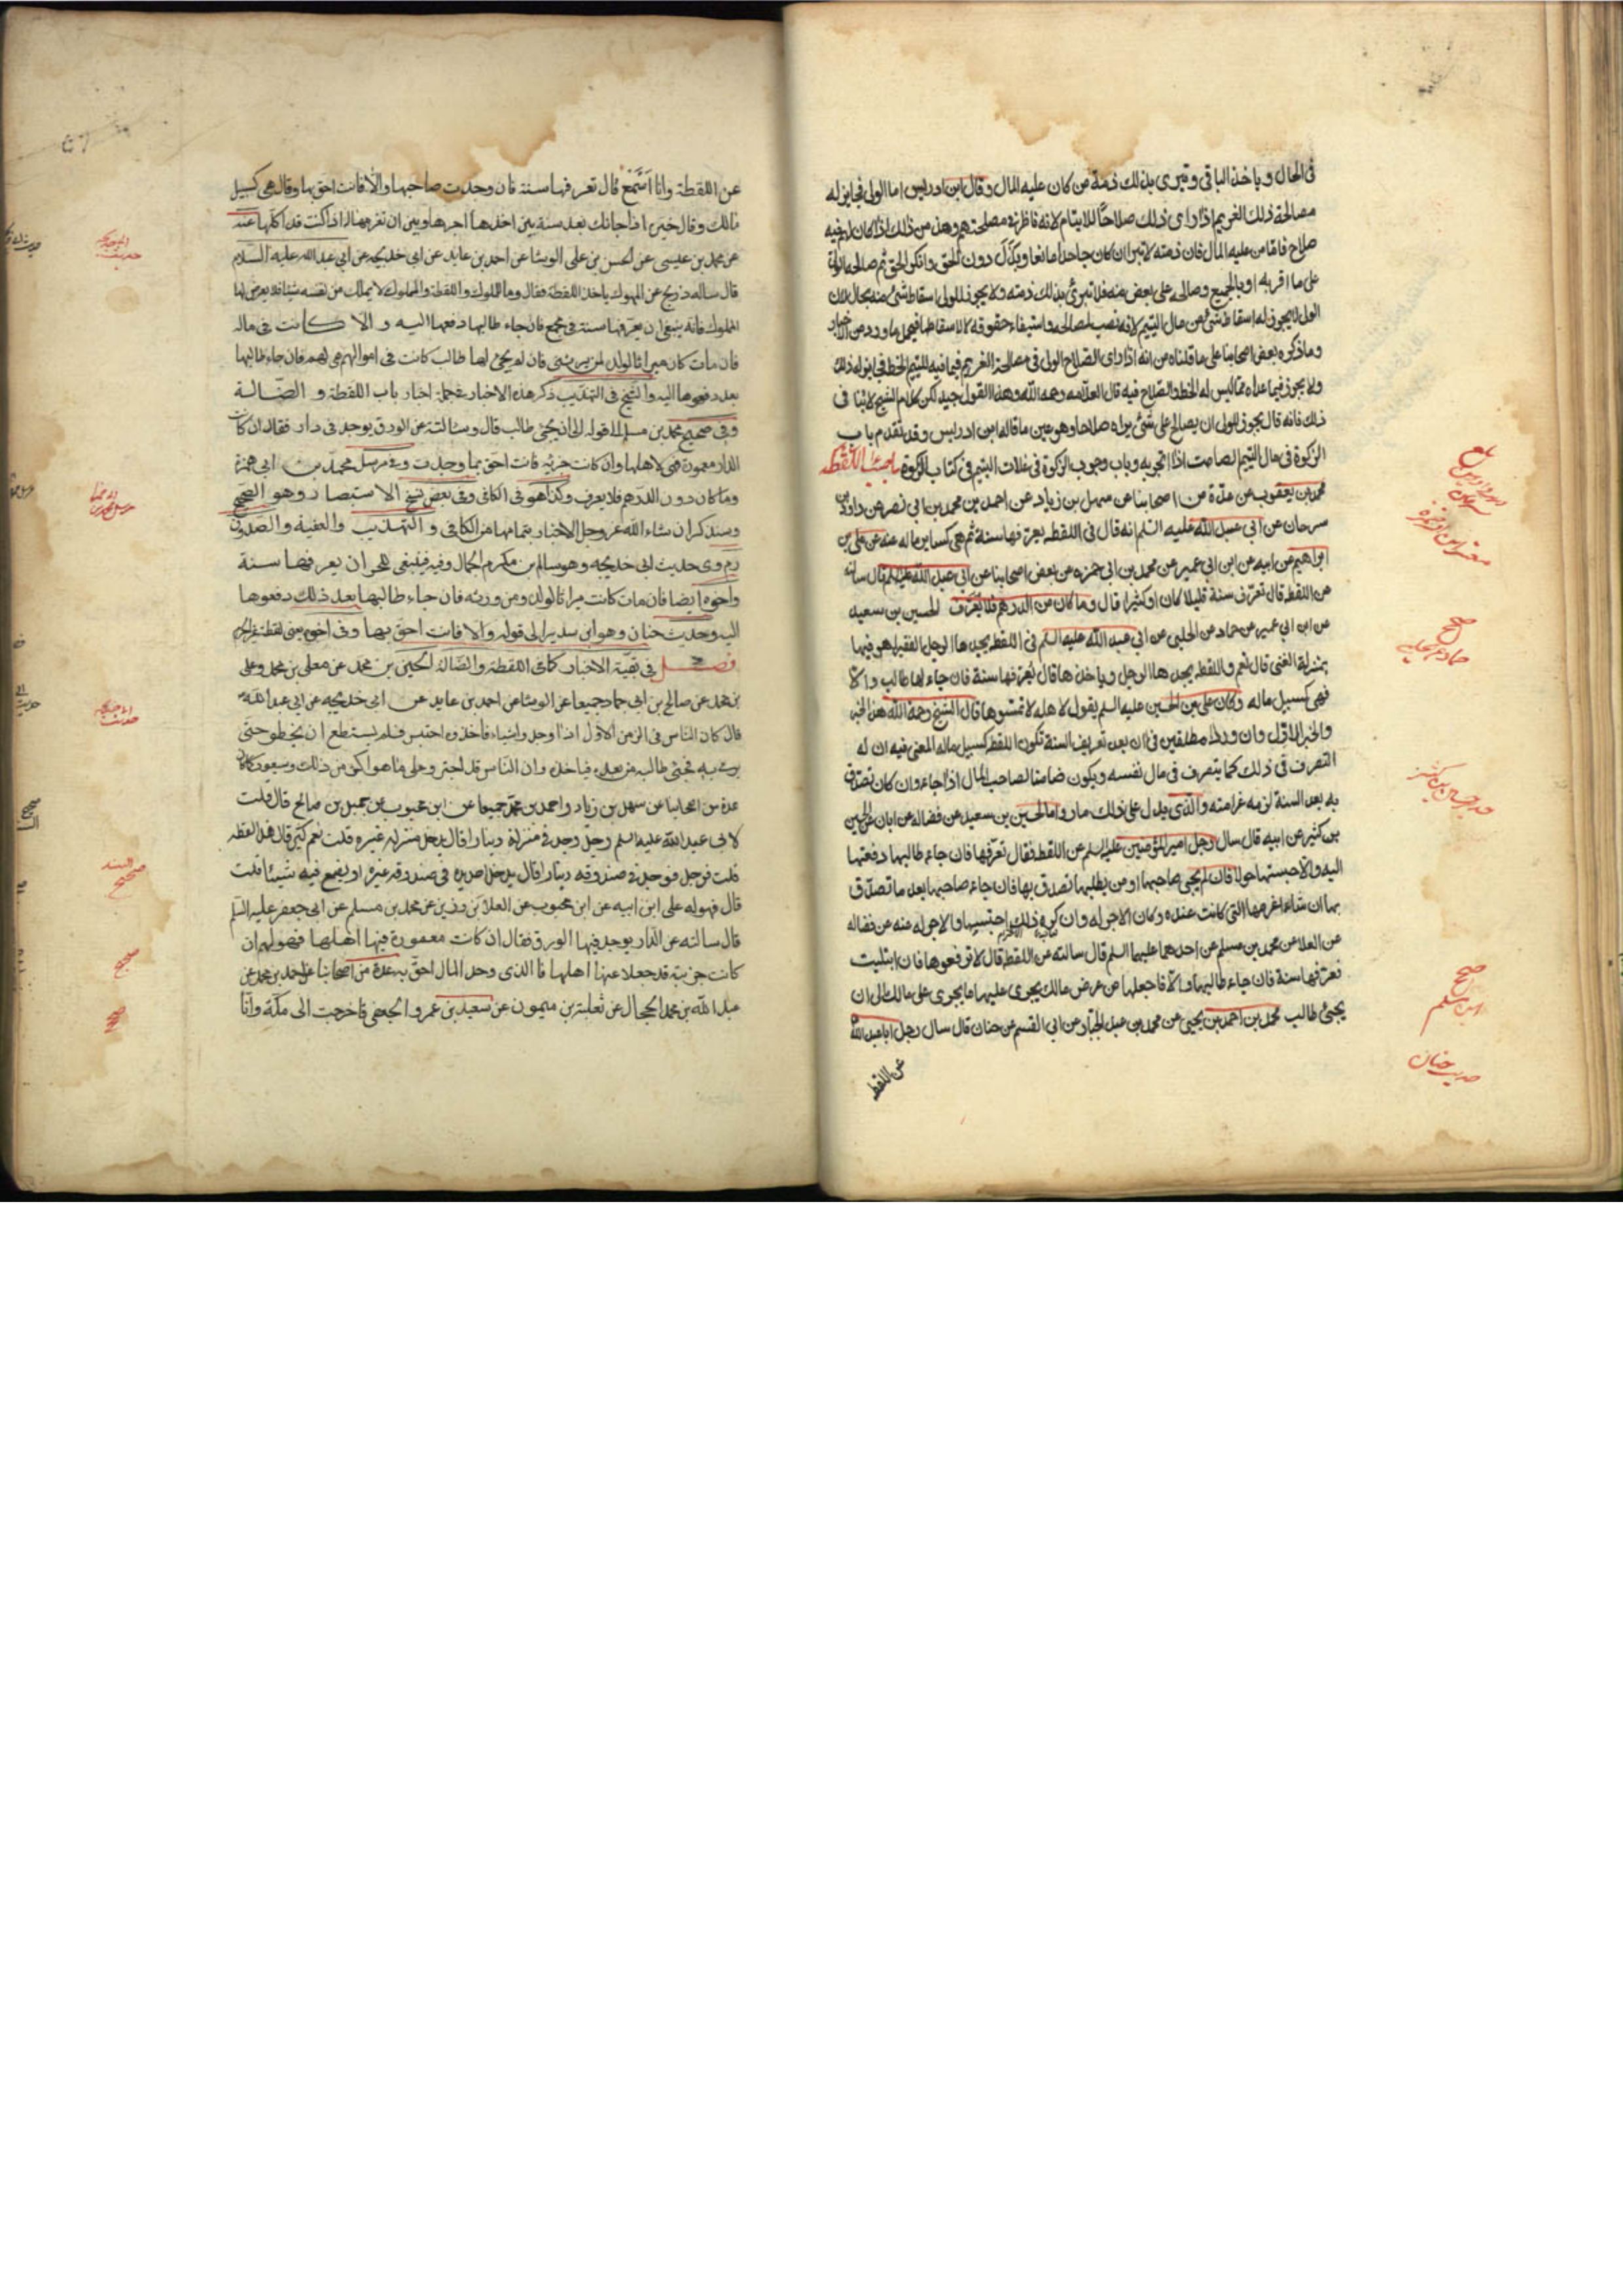 فى الحال وياخذ الباقى وتبرى بذلك ذمة من كان عليه المال وقال ابن ادريس اما الولى فجايز له
مصالحة ذلك الغريم اذا راى ذلك صلاحًا للايتام لانه ناظر فى مصلحتهم وهذا من ذلك اذا كان لهم فيه
صلاح فاما من عليه المال فان ذمته لا تبرا ان كان جاحدا مانعا وبذل دون الحق وانكر الحق ثم صالحه الولى
على ما اقر به او بالجميع وصالحه على بعض منه فلا تبرئ بذلك ذمته ولا يجوز للولى اسقاط شئ منه بحال لان
الولى لا يجوز له اسقاط شئ من مال اليتيم لانه نصب لمصالحه واستيفاء حقوقه لا لاسقاطها فيحمل ما ورد من الاخبار
وما ذكره بعض اصحابنا على ما قلناه من انه اذا راى الصلاح الولى فى مصالحة الغريم فيما فيه لليتيم الحظ فجايز له ذلك
ولا يجوز فيما عداه مما ليس له الحظ والصلاح فيه قال العلامه رحمه الله وهذا القول جيد لكن كلام الشيخ لا ينافى
ذلك فانه قال يجوز للولى ان يصالح على شئ يراه صلاحا وهو عين ما قاله ابن ادريس وقد تقدم باب
الزكوة فى مال اليتيم الصامت اذا اتجر به وباب وجوب الزكوة فى غلات اليتيم فى كتاب الزكوة باب اللقطه
محمد بن يعقوب عن عدّة من اصحابنا عن سهل بن زياد عن احمد بن محمد بن ابى نصر عن داود بن
سرحان عن ابى عبد الله عليه السلم انه قال فى اللقطه يعرّفها سنة ثم هى كساير ماله عنه عن على بن
ابراهيم عن ابيه عن ابن ابى عمير عن محمد بن ابى حمزه عن بعض اصحابنا عن ابى عبد الله عليه السلم قال سالته
عن اللقطه قال تعرّف سنة قليلا كان او كثيرا قال وما كان دون الدرهم فلا يعرّف الحسين بن سعيد
عن ابن ابى عمير عن حماد عن الحلبى عن ابى عبد الله عليه السلم فى اللقطه يجدها الرجل الفقير اهو فيها
بمنزلة الغنى قال نعم واللقطه يجدها الرجل وياخذها قال يعرّفها سنة فان جاء لها طالب والا
فهى كسبيل ماله وكان على بن الحسين عليه السلم يقول لاهله لا تمسوها قال الشيخ رحمه الله هذا الخبر
والخبر الاول وان وردا مطلقين فى ان بعد تعريف السنة تكون اللقطه كسبيل ماله المعنى فيه ان له
التصرف فى ذلك كما يتصرف فى مال نفسه ويكون ضامنا لصاحب المال اذا جاء وان كان تصدق
به بعد السنة لزمه غرامته والذى يدل على ذلك ما رواه الحسين بن سعيد عن فضاله عن ابان عن الحسين
بن كثير عن ابيه قال سال رجل امير المؤمنين عليه السلم عن اللقطه فقال تعرّفها فان جاء طالبها دفعتها
اليه والا حبستها حولا فان لم يجئ صاحبها او من يطلبها تصدق بها فان جاء صاحبها بعد ما تصدّق
بها ان شاء اغرمها التى كانت عنده وكان الاجر له وان كره ذلك احتسبها والاجر له عنه عن فضاله
عن العلا عن محمد بن مسلم عن احدهما عليهما السلم قال سالته عن اللقطه قال لا ترفعوها فان ابتليت
فعرّفها سنة فان جاء طالبها والا فاجعلها من عرض مالك يجرى عليها ما يجرى على مالك الى ان
يجئ طالب محمد بن احمد بن يحيى عن محمد بن عبد الجبار عن ابى القسم عن حنان قال سال رجل ابا عبد الله
عن اللقط
حديث حنان
عن اللقطة وانا اسمع قال تعرفها سنة فان وجدت صاحبها والا فانت احق بها وقال هى كسبيل
مالك وقال خيره اذا جاءك بعد سنة بين اجرها وبين ان تغرمها له اذا كنت قد اكلتها عنه
عن محمد بن عيسى عن الحسن بن على الوشا عن احمد بن عايد عن ابى خديجه عن ابى عبد الله عليه السلام
قال ساله ذريح عن المملوك ياخذ اللقطة فقال وما للمملوك واللقطة والمملوك لا يملك من نفسه شيئا فلا يعرض لها
المملوك فانه ينبغى ان يعرّفها سنة فى مجمع فان جاء طالبها دفعها اليه و الا كانت فى ماله
فان مات كان ميراثا لولده لمن يرثه فان لم يجئ لها طالب كانت فى اموالهم هى لهم فان جاء طالبها
بعد دفعوها اليه والشيخ فى التهذيب ذكر هذه الاخبار فى جملة اخبار باب اللقطة و الضّالة
وفى صحيح محمد بن مسلم الى قوله الى ان يجئ طالب قال وسالته عن الورق يوجد فى دار فقال ان كانت
الدار معمورة فهى لاهلها وان كانت خربة فانت احق بما وجدت وفى مرسل محمد بن ابى حمزة
وما كان دون الدرهم فلا يعرف وكذا هو فى الكافى وفى بعض نسخ الاستبصار وهو الصّحيح
وسنذكر ان شاء الله عز وجل الاخبار بتمامها من الكافى و التهذيب والفقيه والصدوق
ره روى حديث ابى خديجه وهو سالم بن مكرم الجمال وفيه فينبغى للحر ان يعرفها سنة
واخره ايضا فان مات كانت ميراثا لولده ومن ورثه فان جاء طالبها بعد ذلك دفعوها
اليه وحديث حنان وهو ابن سدير الى قوله والا فانت احق بها وفى اخره يعنى لقطة غير الحرم
فصل فى بقية الاخبار كتاب اللقطة والضّالة الحسين بن محمد عن معلى بن محمد وعلى
بن محمد عن صالح بن ابى حماد جميعا عن الوشا عن احمد بن عايد عن ابى خديجه عن ابى عبد الله
قال كان النّاس فى الزمن الاوّل اذا وجدوا شيئا فاخذوه احتبس فلم يستطع ان يخطو حتى
يرمى به فيجئ طالبه من بعده فياخذه وان النّاس قد اجترءوا على ما هو اكثر من ذلك وسيعود كما كان
عدة من اصحابنا عن سهل بن زياد واحمد بن محمّد جميعا عن ابن محبوب عن جميل بن صالح قال قلت
لابى عبد الله عليه السلم رجل وجد فى منزله دينارا قال يدخل منزله غيره قلت نعم كثير قال هذا لقطه
قلت فرجل فوجد فى صندوقه دينارا قال يدخل احد يده فى صندوقه غيره او يضع فيه شيئا قلت
قال فهو له على ابن ابيه عن ابن محبوب عن العلا بن رزين عن محمد بن مسلم عن ابى جعفر عليه السلم
قال سالته عن الدار يوجد فيها الورق فقال ان كانت معمورة فيها اهلها فهو لهم ان
كانت خربة قد جعلا عنها اهلها فالذى وجد المال احق به عدة من اصحابنا عن احمد بن محمد عن
عبد الله بن محمد الحجال عن ثعلبة بن ميمون عن سعيد بن عمرو الجعفى فاخرجت الى مكة وانا
السند صحيح
صحيح